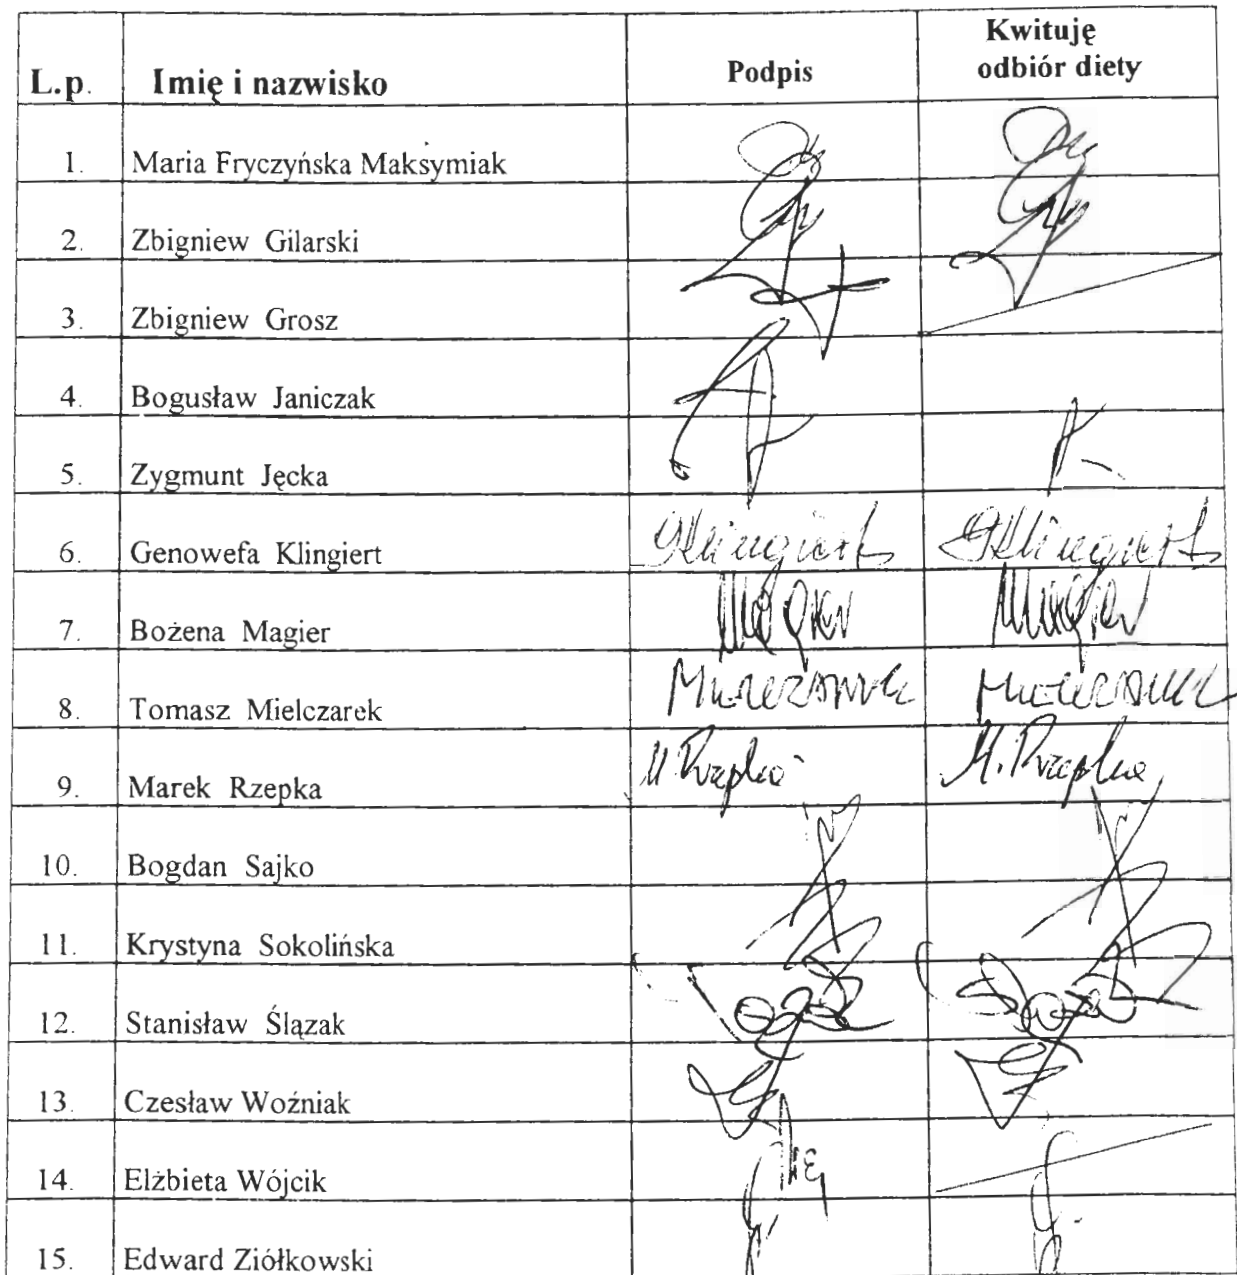 L.p. Imię i nazwisko Podpis Kwituję odbiór diety
1. Maria Fryczyńska Maksymiak
2. Zbigniew Gilarski
3. Zbigniew Grosz
4. Bogusław Janiczak
5. Zygmunt Jęcka
6. Genowefa Klingiert GKlingiert GKlingiert
7. Bożena Magier Magier Magier
8. Tomasz Mielczarek Mielczarek Mielczarek
9. Marek Rzepka M. Rzepka M. Rzepka
10. Bogdan Sajko
11. Krystyna Sokolińska
12. Stanisław Ślązak
13. Czesław Woźniak
14. Elżbieta Wójcik
15. Edward Ziółkowski